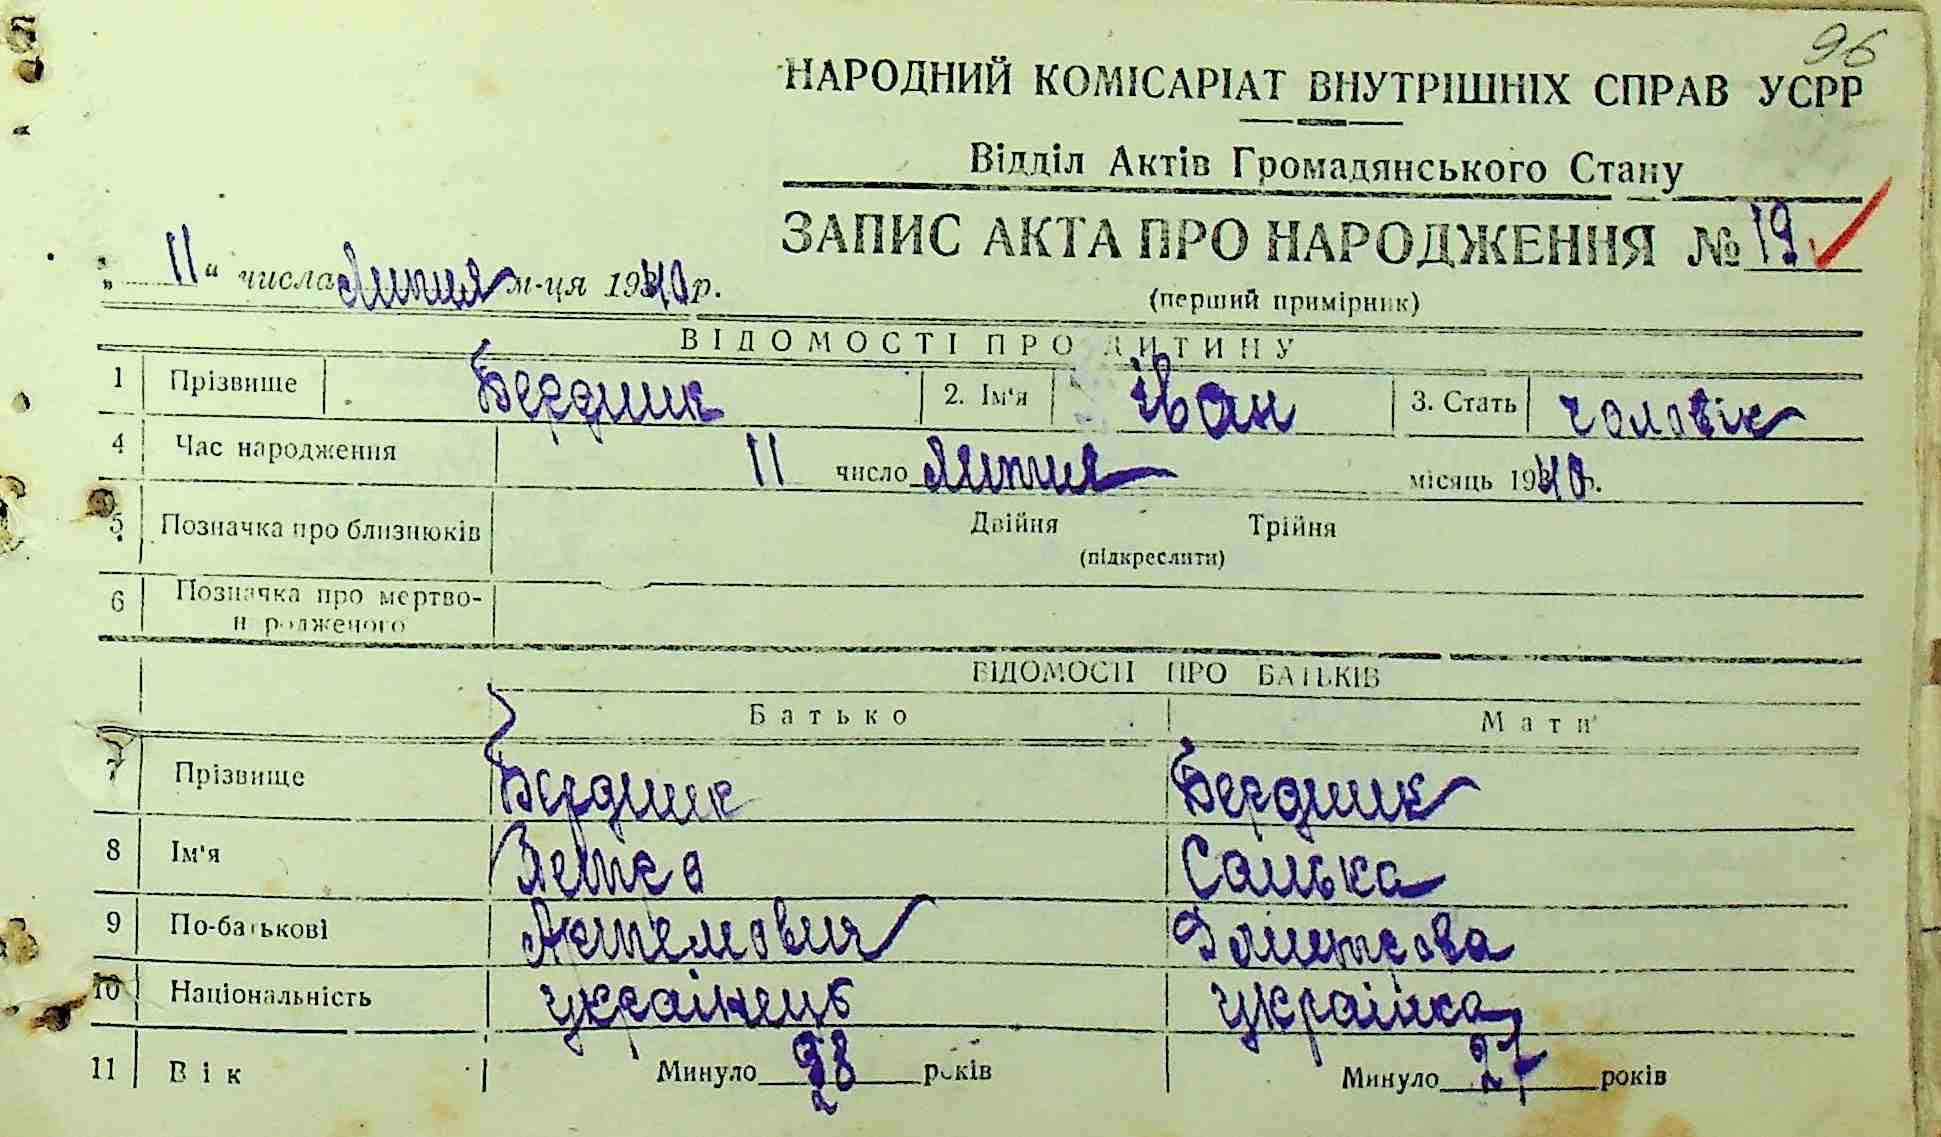 96
НАРОДНИЙ КОМІСАРІАТ ВНУТРІШНІХ СПРАВ УСРР
Відділ Актів Громадянського Стану
ЗАПИС АКТА ПРО НАРОДЖЕННЯ № 19
„ 11 “ числа Липня м-ця 1940 р.
(перший примірник)
ВІДОМОСТІ ПРО ДИТИНУ
1 Прізвище Бердник 2. Ім'я Іван 3. Стать чоловік
4 Час народження 11 число Липня місяць 1940 р.
5 Позначка про близнюків Двійня Трійня
(підкреслити)
6 Позначка про мертво-
народженого
ВІДОМОСТІ ПРО БАТЬКІВ
Батько Мати
7 Прізвище Бердник Бердник
8 Ім'я Санька
9 По-батькові
10 Національність українець українка
11 Вік Минуло 28 років Минуло 27 років